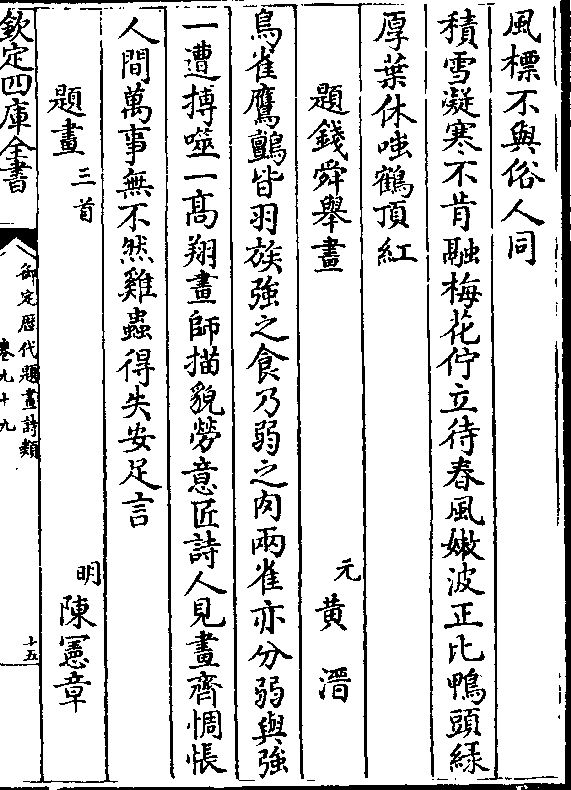 風標不與俗人同
積雪凝寒不肯融梅花佇立待春風嫩波正比鴨頭緑
厚葉休嗤鶴頂紅
題錢舜舉畫
元黄溍
鳥雀鷹鸇皆羽族強之食乃弱之肉兩雀亦分弱與強
一遭搏噬一高翔畫師描貌勞意匠詩人見畫齊惆悵
人間萬事無不然雞蟲得失安足言
題畫三首
明陳憲章
欽定四庫全書
御定歴代題畫詩類
卷九十九
十五